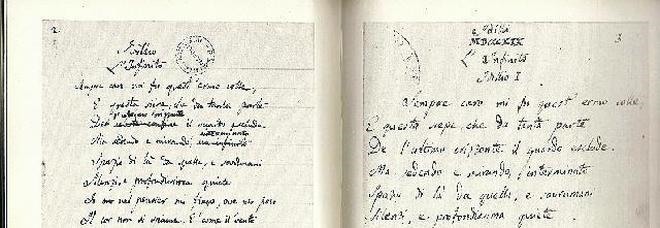 2.
Idillio
L'Infinito
Sempre caro mi fu quest'ermo colle,
E questa siepe, che da tanta parte
l'ultimo orizzonte
De celeste confine il guardo esclude.
interminato
Ma sedendo e mirando, un infinito
Spazio di là da quella, e sovrumani
Silenzi, e profondissima quiete
Io nel pensier mi fingo, ove per poco
Il cor non si spaura. E come il vento
3
Idilli
MDCCCXIX
L'Infinito
Idillio I
Sempre caro mi fu quest'ermo colle
E questa siepe, che da tanta parte
De l'ultimo orizzonte il guardo esclude.
Ma sedendo e mirando, interminato
Spazio di là da quella, e sovrumani
Silenzi, e profondissima quiete